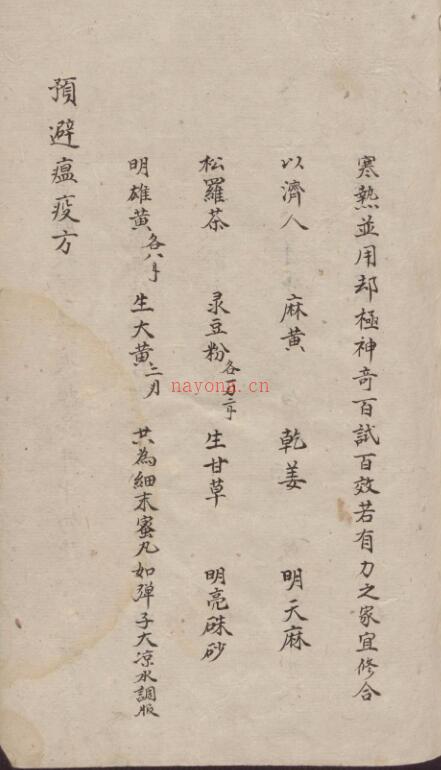 寒熱並用却極神奇百試百效若有力之家宜修合
以濟人 麻黄 乾姜 明天麻
松羅茶 彔豆粉各一两二手 生甘草 明亮硃砂
明雄黄各八手 生大黄二刃 共為細末蜜丸如弹子大凉水調服
預避瘟疫方
nayona.cn